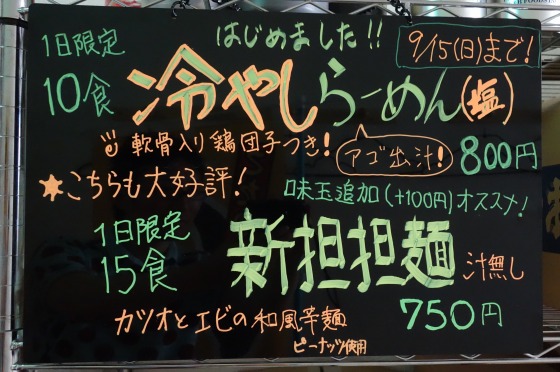 はじめました!!
9/15(日)まで!
1日限定
10食
冷やしらーめん(塩)
軟骨入り鶏団子つき!
アゴ出汁!
800円
★こちらも大好評!
味玉追加(+100円)オススメ!
1日限定
15食
新担担麺
汁無し
カツオとエビの和風辛麺
750円
ピーナッツ使用